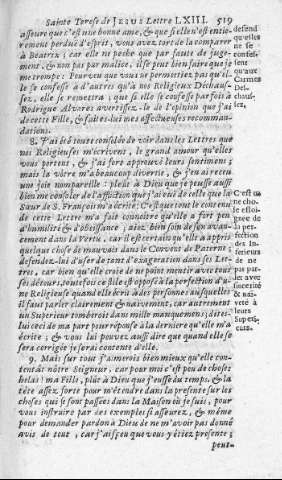 Sainte Terese de JESUS Lettre LXIII. 519
asseure que c'est une bonne ame, & que si elle n'est enti-
erement perdue d'esprit, vous avez tort de la comparer
à Beatrix; car elle ne peche que par faute de juge-
ment, & non pas par malice, il se peut bien faire que je
me trompe: Pourveu que vous ne permettiez pas qu'el-
le se confesse à d'autres qu'à nos Religieux Déchaus-
sez, elle se remettra; que si elle se confesse par fois à
Rodrigue Alvares avertissez-le de l'opinion que j'ai
de cette Fille, & faites-lui mes affectueuses recomman-
dations.
8. J'ai été toute consolée de voir dans les Lettres que
nos Religieuses m'écrivent, le grand amour qu'elles
vous portent, & j'ai fort approuvé leurs sentimens;
mais la vôtre m'a beaucoup divertie, & j'en ai receu
un joie nompareille: pleût à Dieu que je peusse aussi
bien me consoler de l'affliction que j'ai eu de celle que la
Sœur de S. François m'écrit; C'est que tout le contenu
de cette Lettre m'a fait connoître qu'elle a fort peu
d'humilité & d'obeissance; aiez bien soin de son avan-
cement dans la Vertu, car il est certain qu'elle a appris
quelque chose de mauvais dans le Couvent de Paterne;
défendez-lui d'user de tant d'exageration dans ses Let-
tres, car bien qu'elle croie de ne point mentir avec tout
ses détours, toutefois ce stile est opposé à la perfection d'u-
ne Religieuse quand elle écrit à des personnes ausquelles
il faut parler clairement & naivement, car autrement
un Superieur tomberoit dans mille manquemens; dites-
lui ceci de ma part pour réponse à la derniere qu'elle m'a
écrite; & vous lui pouvez aussi dire que quand elle se
sera corrigée je serai contente d'elle.
9. Mais sur tout j'aimerois bien mieux qu'elle con-
tentât nôtre Seigneur, car pour moi c'est peu de chose:
helas! ma Fille, plût à Dieu que j'eusse du temps, & la
tête assez forte pour m'étendre dans la presente sur les
choses qui se sont passées dans la Maison où je suis, pour
vous instruire par des exemples si asseurez, & même
pour demander pardon à Dieu de ne m'avoir pas donné
avis de tout, car j'ai sceu que vous y étiez presente;
peut-
defend
qu'elles
ne se
confes-
sent
qu'aux
Carmes
Des-
chaus-
sez,
C'est u-
ne cho-
se éloi-
gnée de
la per-
fection
des In-
ferieurs
de ne
pas par-
ler avec
sincerité
& nai-
veté à
leurs
Superi-
eurs.